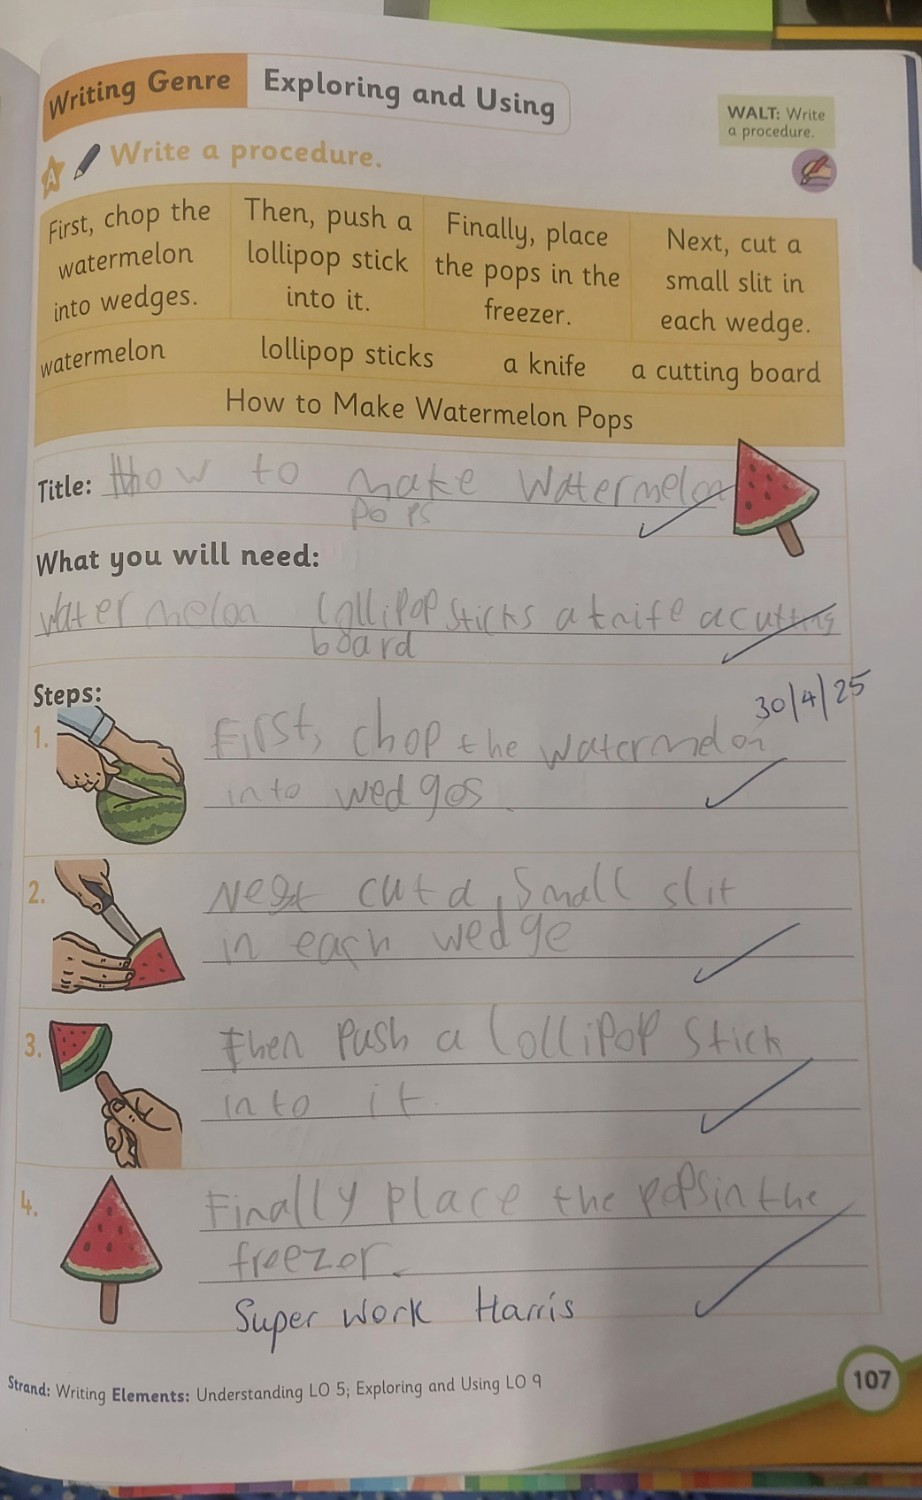 Writing Genre Exploring and Using
WALT: Write
a procedure.
A Write a procedure.
First, chop the
watermelon
into wedges.
Then, push a
lollipop stick
into it.
Finally, place
the pops in the
freezer.
Next, cut a
small slit in
each wedge.
watermelon lollipop sticks a knife a cutting board
How to Make Watermelon Pops
Title: How to make Watermelon
pops
What you will need:
water melon lollipop sticks a knife a cutting
board
Steps:
30/4/25
1. First, chop the watermelon
into wedges.
2. Next cut a small slit
in each wedge
3. then push a lollipop stick
into it.
4. Finally place the pops in the
freezer.
Super work Harris
Strand: Writing Elements: Understanding LO 5; Exploring and Using LO 9
107